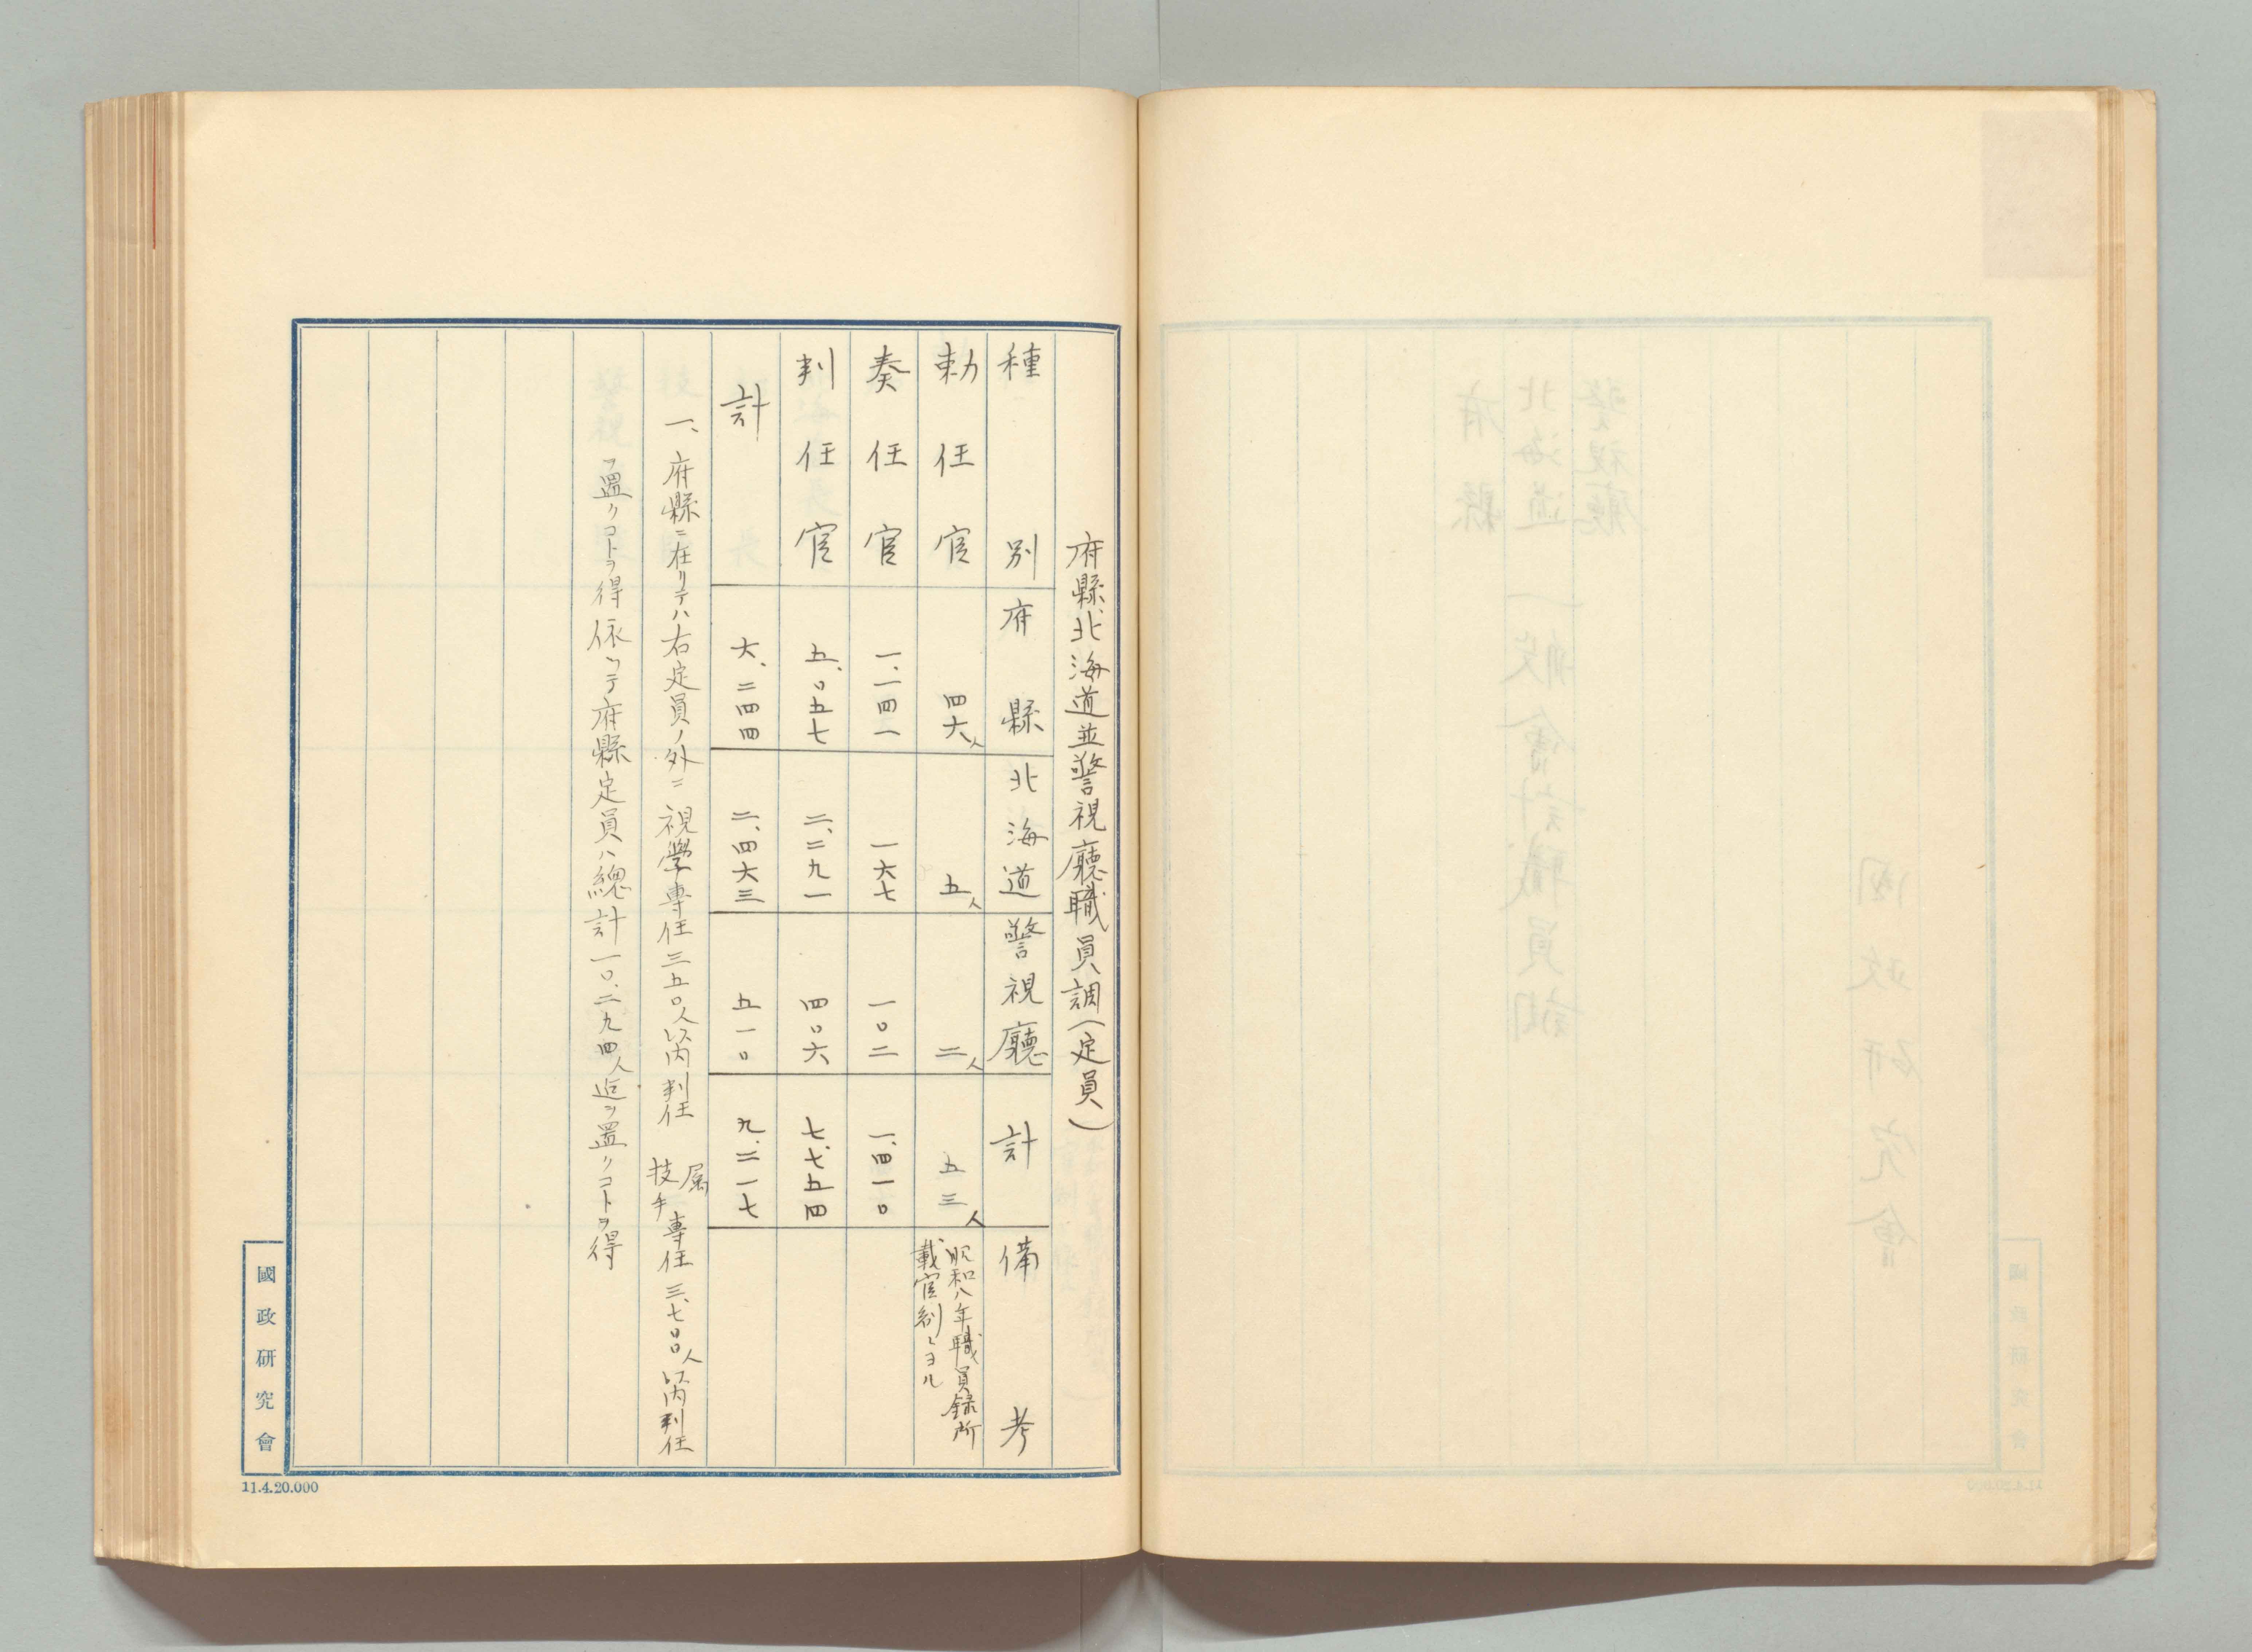 府縣、北海道並警視廳職員調(定員)
種別 府縣 北海道 警視廳 計 備考
勅任官 四六人 五人 二人 五三人 昭和八年職員録所
載官制ニヨル
奏任官 一、一四一 一六七 一〇二 一、四一〇
判任官 五、〇五七 二、二九一 四〇六 七、七五四
計 六、二四四 二、四六三 五一〇 九、二一七
一、府縣ニ在リテハ右定員ノ外ニ視學專任三五〇人以内判任 属 技手 專任三、七〇〇人以内判任
ヲ置クコトヲ得依ツテ府縣定員ハ總計一〇、二九四人迄ヲ置クコトヲ得
國政研究會
11.4.20.000